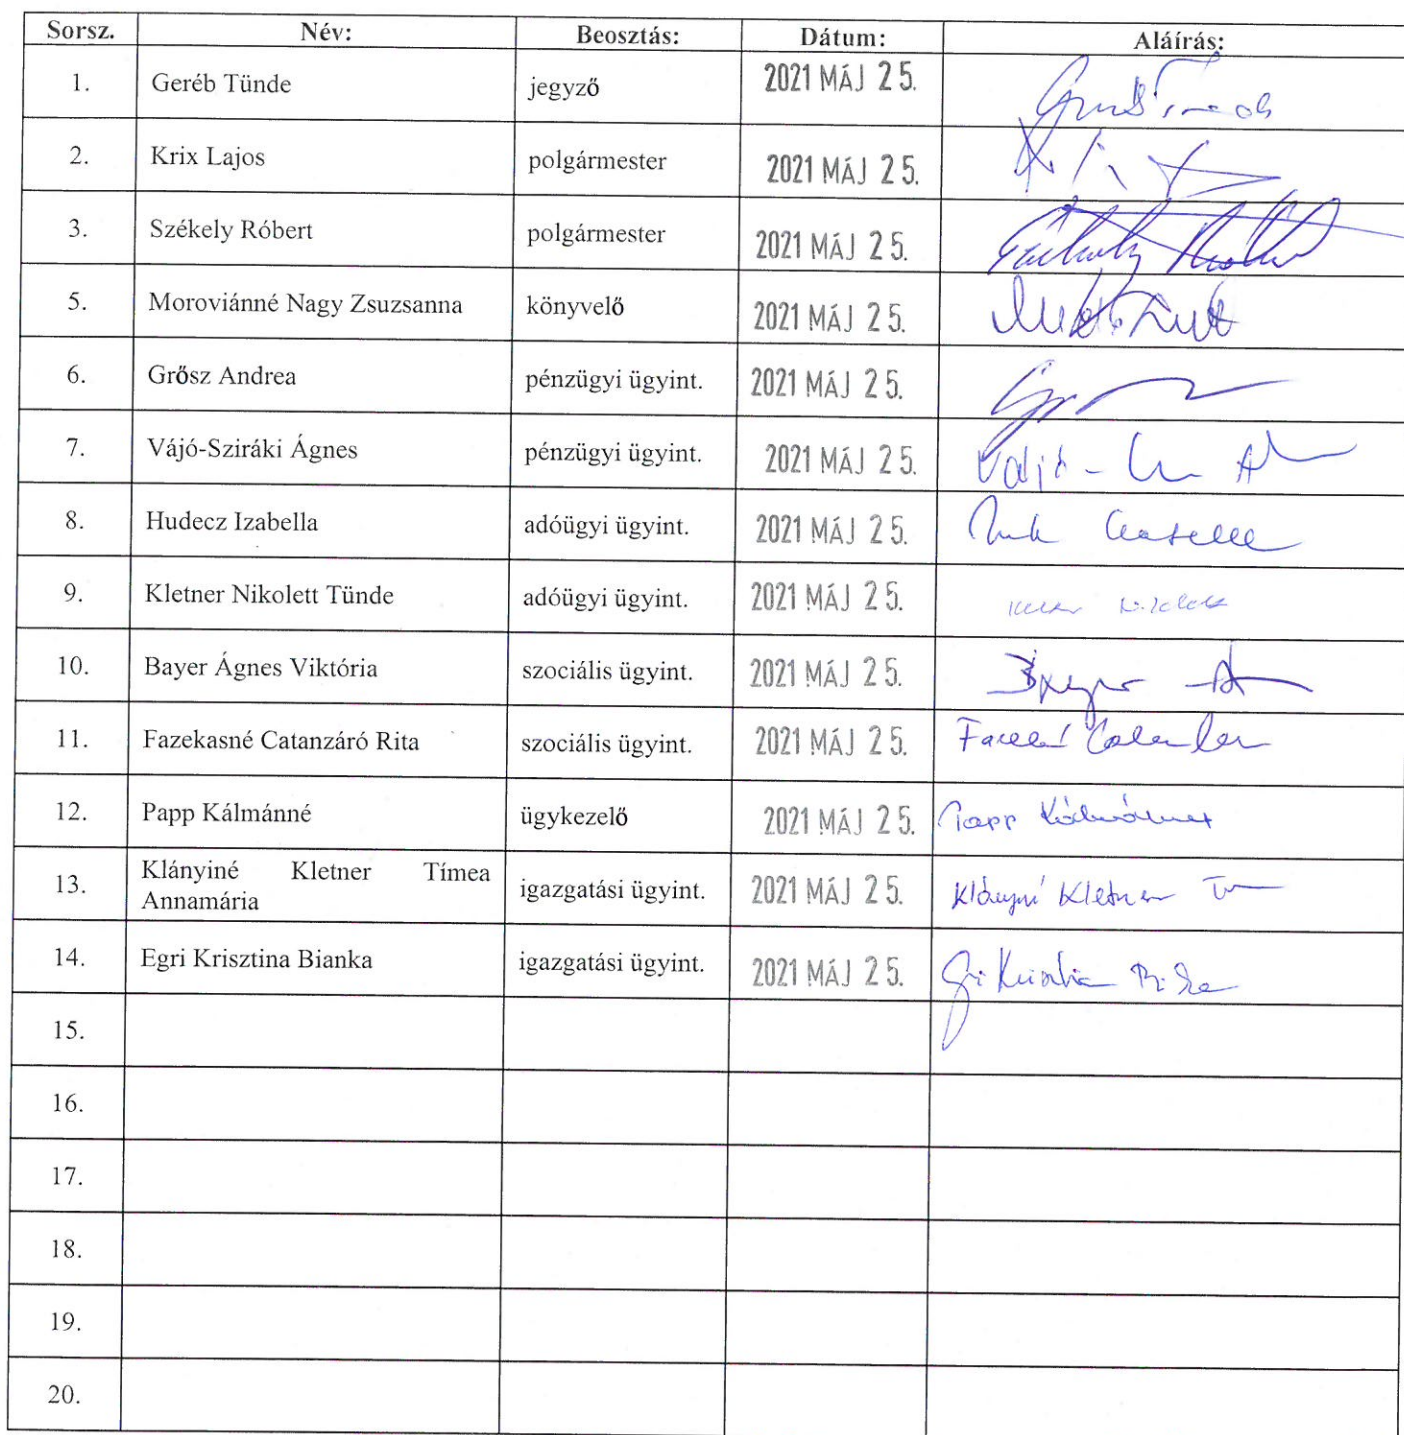 Sorsz. Név: Beosztás: Dátum: Aláírás:
1. Geréb Tünde jegyző 2021 MÁJ 25.
2. Krix Lajos polgármester 2021 MÁJ 25.
3. Székely Róbert polgármester 2021 MÁJ 25.
5. Moroviánné Nagy Zsuzsanna könyvelő 2021 MÁJ 25.
6. Grősz Andrea pénzügyi ügyint. 2021 MÁJ 25.
7. Vájó-Sziráki Ágnes pénzügyi ügyint. 2021 MÁJ 25.
8. Hudecz Izabella adóügyi ügyint. 2021 MÁJ 25.
9. Kletner Nikolett Tünde adóügyi ügyint. 2021 MÁJ 25.
10. Bayer Ágnes Viktória szociális ügyint. 2021 MÁJ 25.
11. Fazekasné Catanzáró Rita szociális ügyint. 2021 MÁJ 25.
12. Papp Kálmánné ügykezelő 2021 MÁJ 25. Papp Kálmánné
13. Klányiné Kletner Tímea
Annamária igazgatási ügyint. 2021 MÁJ 25. Klányiné Kletner
14. Egri Krisztina Bianka igazgatási ügyint. 2021 MÁJ 25.
15.
16.
17.
18.
19.
20.